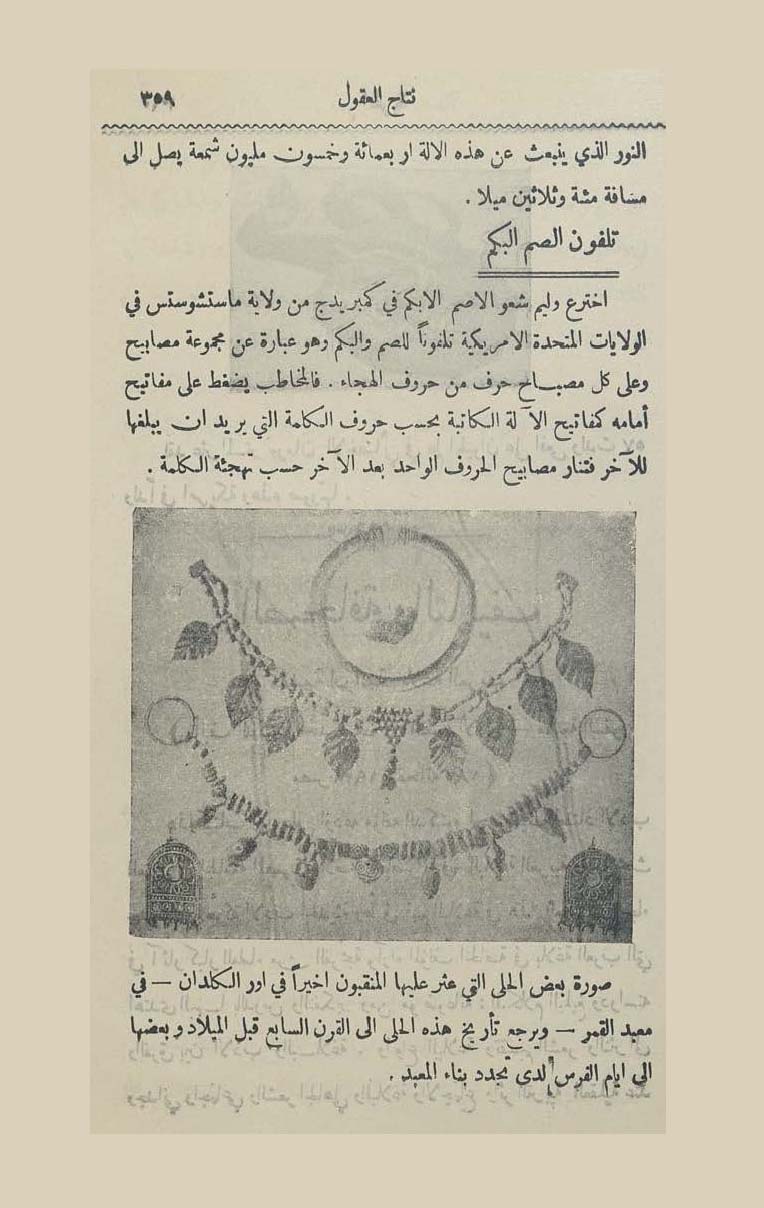 نتاج العقول ٣٥٩
النور الذي ينبعث عن هذه الالة اربعمائة وخمسون مليون شمعة يصل الى
مسافة مئة وثلاثين ميلا .
تلفون الصم البكم
اخترع وليم شعو الاصم الابكم في كمبريدج من ولاية ماستشوستس في
الولايات المتحدة الامريكية تلفوناً للصم والبكم وهو عبارة عن مجموعة مصابيح
وعلى كل مصباح حرف من حروف الهجاء . فالمخاطب يضغط على مفاتيح
أمامه كمفاتيح الآلة الكاتبة بحسب حروف الكلمة التي يريد ان يبلغها
للآخر فتنار مصابيح الحروف الواحد بعد الآخر حسب تهجئة الكلمة .
صورة بعض الحلى التي عثر عليها المنقبون اخيراً في اور الكلدان — في
معبد القمر — ويرجع تأريخ هذه الحلى الى القرن السابع قبل الميلاد وبعضها
الى ايام الفرس لدى تجدد بناء المعبد .